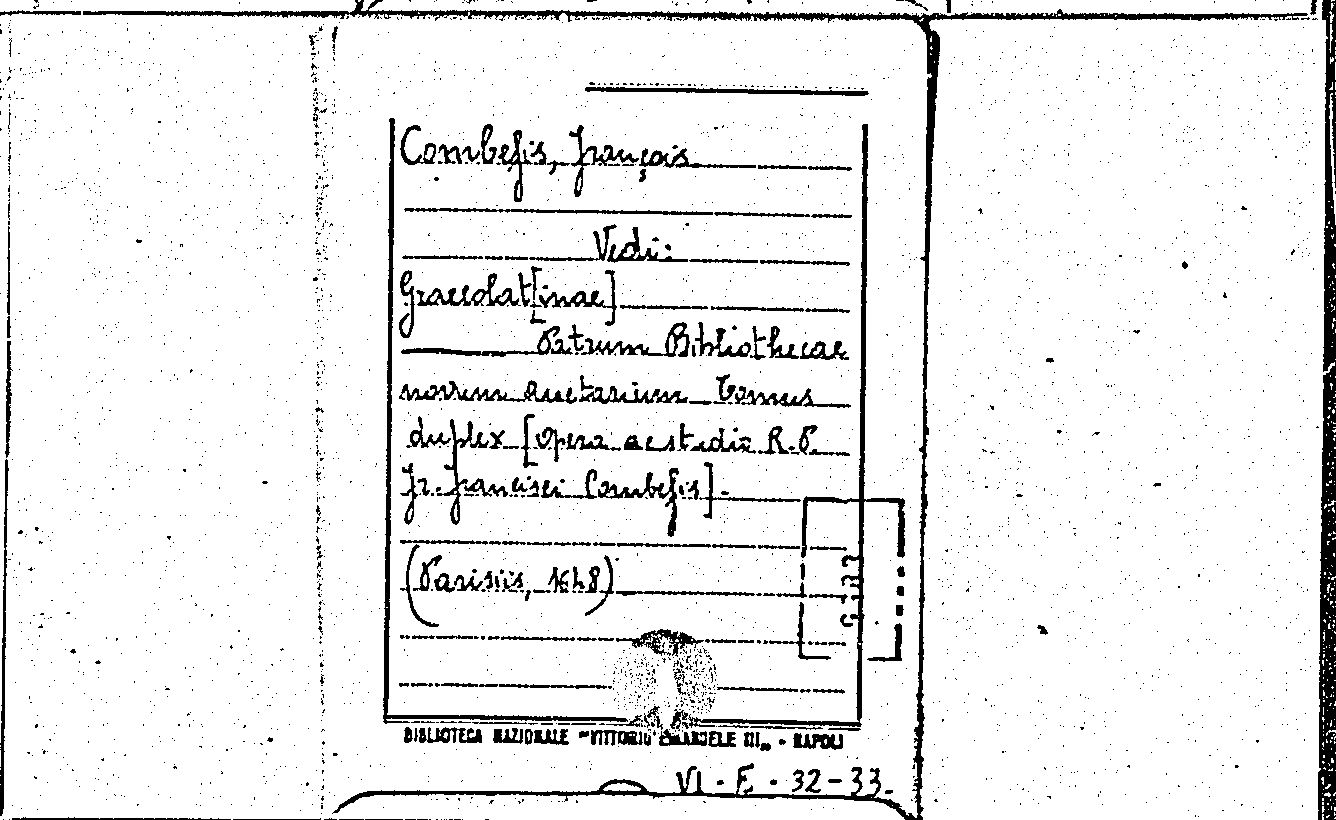 Combefis, François
Vedi:
Graecolat[inae]
Patrum Bibliothecae
novum auctarium tomus
duplex [opera ac studio R.P.
Fr. Francisci Combefis].
(Parisiis, 1648)
BIBLIOTECA NAZIONALE "VITTORIO EMANUELE III„ - NAPOLI
VI - E - 32-33.